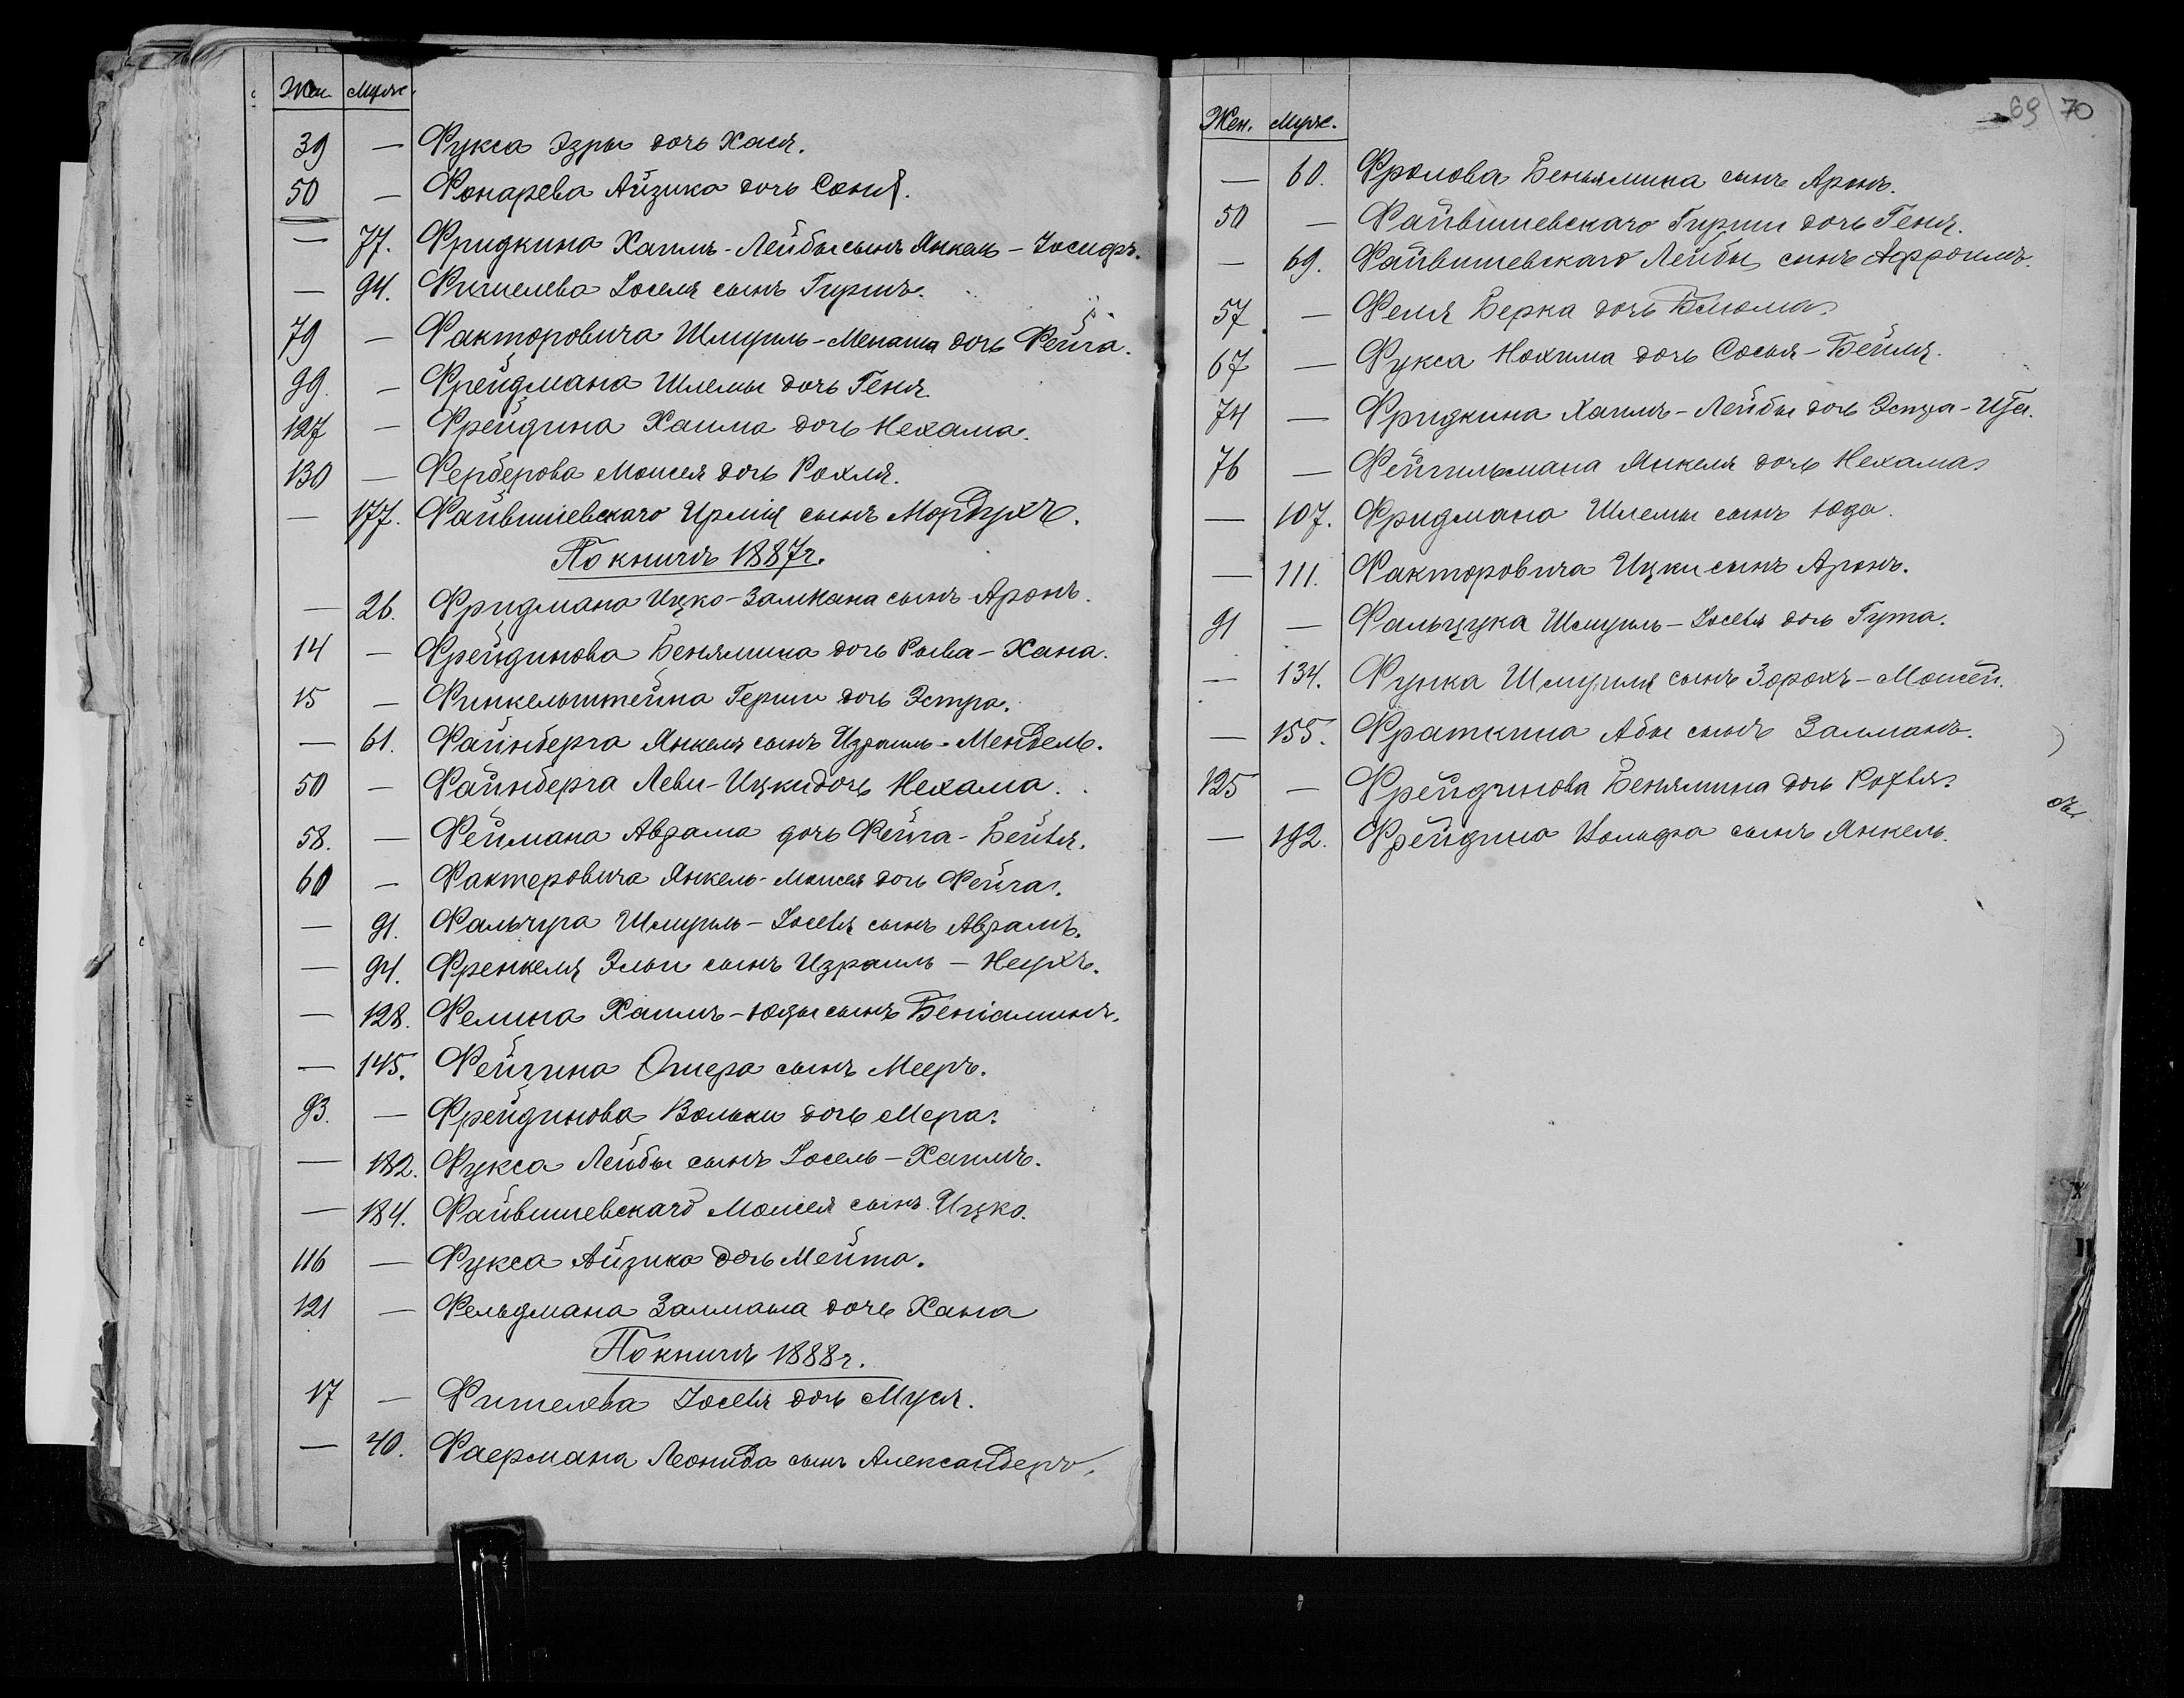 Жен. Муж.
39 — Фукса Эзры дочь Хася.
50 — Фонарева Айзика дочь Соня.
— 77. Фридкина Хаимъ-Лейбы сынъ Янкель-Іосифъ.
— 94. Фишелева Іоселя сынъ Гиршъ.
79 — Факторовича Шмуиль-Менаша дочь Фейга.
99. — Фрейдмана Шлемы дочь Геня.
127 — Фрейдина Хаима дочь Нехама.
130 — Ферберова Моисея дочь Рохля.
— 177. Файвишевскаго Ирмія сынъ Мордухъ.
По книгѣ 1887г.
— 26. Фридмана Ицко-Залмана сынъ Аронъ.
14 — Фрейдинова Бенямина дочь Рыва-Хана.
15 — Финкельштейна Герши дочь Эстра.
— 61. Файнберга Янкеля сынъ Израиль-Мендель.
50 — Файнберга Леви-Ицки дочь Нехама.
58. — Феймана Аврама дочь Фейга-Бейля.
60 — Фактеровича Янкель-Моисея дочь Фейга.
— 91. Фальчура Шмуиль-Іоселя сынъ Аврамъ.
— 94. Френкеля Эльи сынъ Израиль-Неухъ.
— 128. Фелина Хаимъ-Юды сынъ Беніаминъ.
— 145. Фейгина Ошера сынъ Мееръ.
93. — Фрейдинова Вольки дочь Мера.
— 182. Фукса Лейбы сынъ Іосель-Хаимъ.
— 184. Файвишевскаго Моисея сынъ Ицко.
116 — Фукса Айзика дочь Мейта.
121 — Фельдмана Залмана дочь Хана
По книгѣ 1888г.
17 — Фишелева Іоселя дочь Муся.
— 40. Фаермана Леонида сынъ Александеръ.
69 70
Жен. Муж.
— 60. Фролова Беньямина сынъ Аронъ.
50 — Файвишевскаго Гирши дочь Геня.
— 69. Файвишевскаго Лейбы сынъ Афроимъ.
57 — Феля Берка дочь Блюма
67 — Фукса Нохима дочь Сосья-Бейля.
74 — Фридкина Хаимъ-Лейбы дочь Эстра-Ита.
76 — Фейгильмана Янкеля дочь Нехама
— 107. Фридмана Шлемы сынъ Юда.
— 111. Факторовича Ицки сынъ Аронъ.
91 — Фальцука Шмуиль-Іоселя дочь Гута.
— 134. Функа Шмуиля сынъ Зорохъ-Моисей.
— 155. Фраткина Абы сынъ Залманъ.
125 — Фрейдинова Бенямина дочь Рохля.
— 192. Фрейдина Вольфа сынъ Янкель.